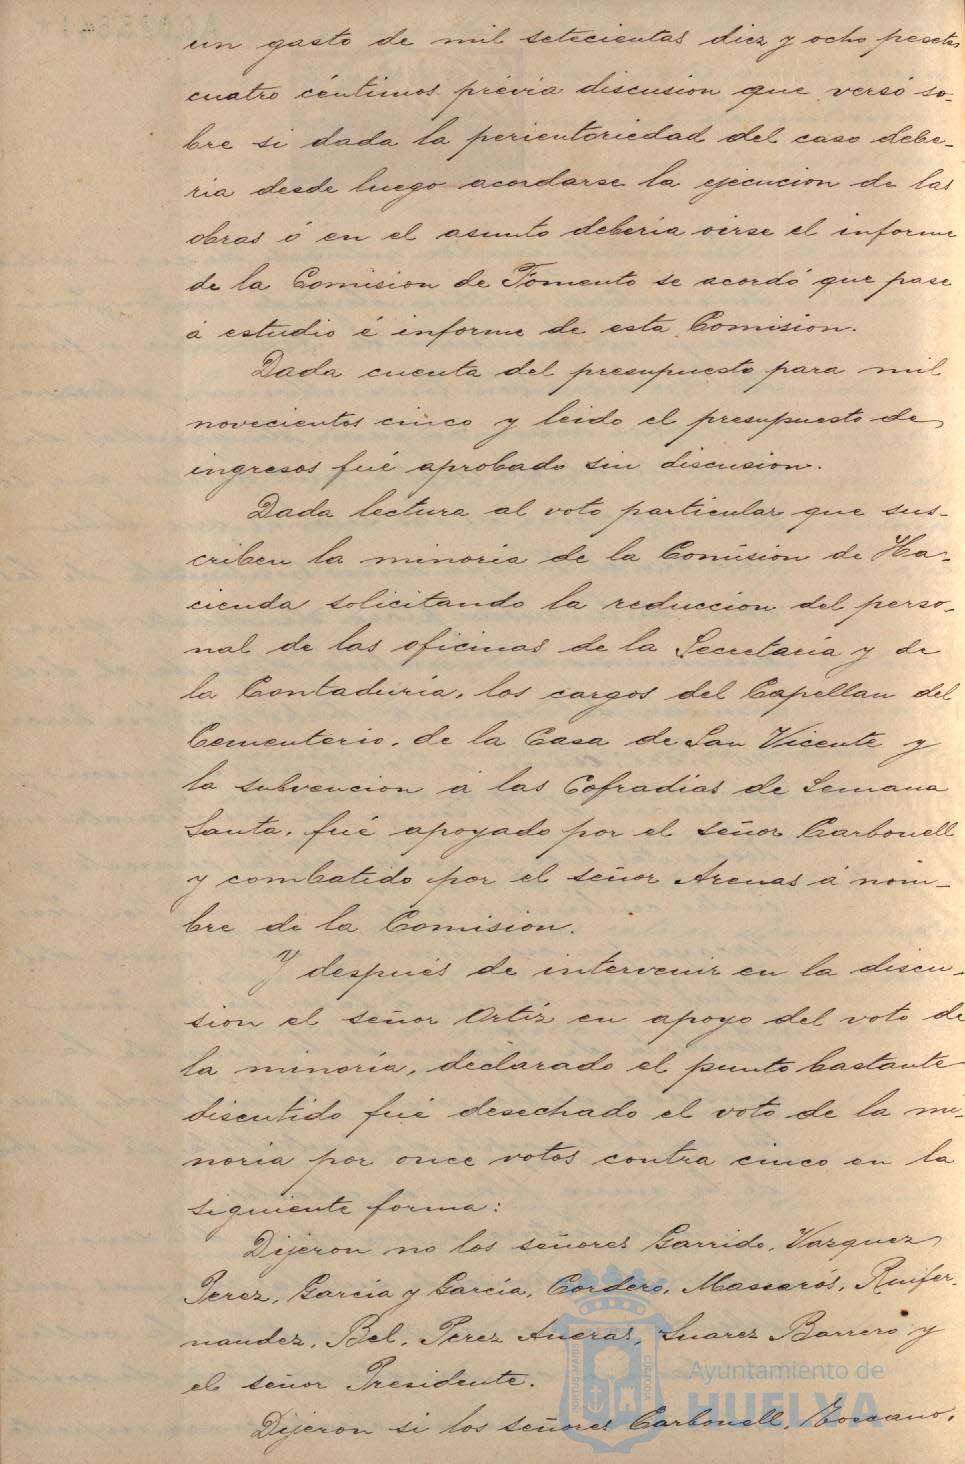 un gasto de mil setecientas diez y ocho pesetas
cuatro céntimos prévia discusion que versó so-
bre si dada la perientoriedad del caso debe-
ria desde luego acordarse la ejecucion de las
obras ó en el asunto deberia oirse el informe
de la Comision de Fomento se acordó que pase
á estudio é informe de esta Comision.
Dada cuenta del presupuesto para mil
novecientos cinco y leido el presupuesto de
ingresos fué aprobado sin discusion.
Dada lectura al voto particular que sus-
criben la minoria de la Comision de Ha-
cienda solicitando la reduccion del perso-
nal de las oficinas de la Secretaria y de
la Contaduria, los cargos del Capellan del
Cementerio, de la Casa de San Vicente y
la subvencion á las Cofradias de Semana
Santa, fué apoyado por el señor Carbonell
y combatido por el señor Arenas á nom-
bre de la Comision.
Y después de intervenir en la discu-
sion el señor Ortiz en apoyo del voto de
la minoria, declarado el punto bastante
discutido fué desechado el voto de la mi-
noria por once votos contra cinco en la
siguiente forma:
Dijeron no los señores Garrido, Vazquez
Perez, Garcia y Garcia, Cordero, Mascarós, Ruifer-
nandez, Bel, Perez Aueras, Suarez Barrero y
el señor Presidente.
Dijeron si los señores Carbonell, Toscano,
Ayuntamiento de
HUELVA